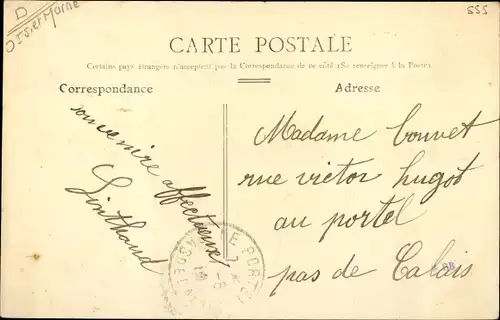 D
555
CARTE POSTALE
Certains pays étrangers n'acceptent pas la Correspondance de ce côté (Se renseigner à la Poste).
Correspondance
Adresse
souvenire affectueux
Madame Bouvet
rue victor hugot
au portel
pas de Calais
LE PORTEL